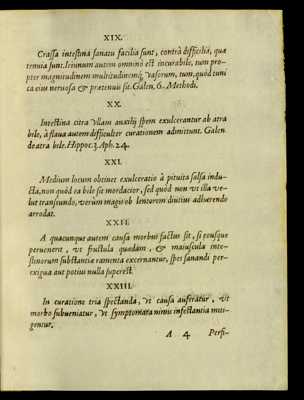 XIX.
Crassa intestina sanatu facilia sunt, contrà difficilia, quæ
tenuia sunt. Ieiunum autem omninò est incurabile, tum pro-
pter magnitudinem multitudinemq́; vasorum, tum, quòd tuni
ca eius neruosa & prætenuis sit. Galen. 6. Methodi.
XX.
Intestina citra vllam auxilij spem exulcerantur ab atra
bile, à flaua autem difficulter curationem admittunt. Galen.
de atra bile. Hippoc. 3. Aph. 24.
XXI.
Medium locum obtinet exulceratio à pituita salsa indu-
cta, non quòd ea bile sit mordacior, sed quòd non vt illa ve-
lut transeundo, verùm magis ob lentorem diutius adhærendo
arrodat.
XXII.
A quacunque autem causa morbus factus sit, si eousque
peruenerit, vt frustula quædam, & maiuscula inte-
stinorum substantiæ ramenta excernantur, spes sanandi per-
exigua aut potius nulla superest.
XXIII.
In curatione tria spectanda, vt causa auferatur, vt
morbo subueniatur, vt symptomata nimis infestantia miti-
gentur.
A 4 Persi-